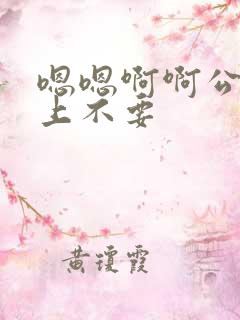 嗯嗯啊啊公
上不要
黄琼霞